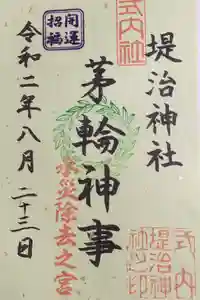 式内社
堤治神社
茅輪神事
水災除去之宮
開運
招福
令和二年八月二十三日
式内
堤治神
社之印